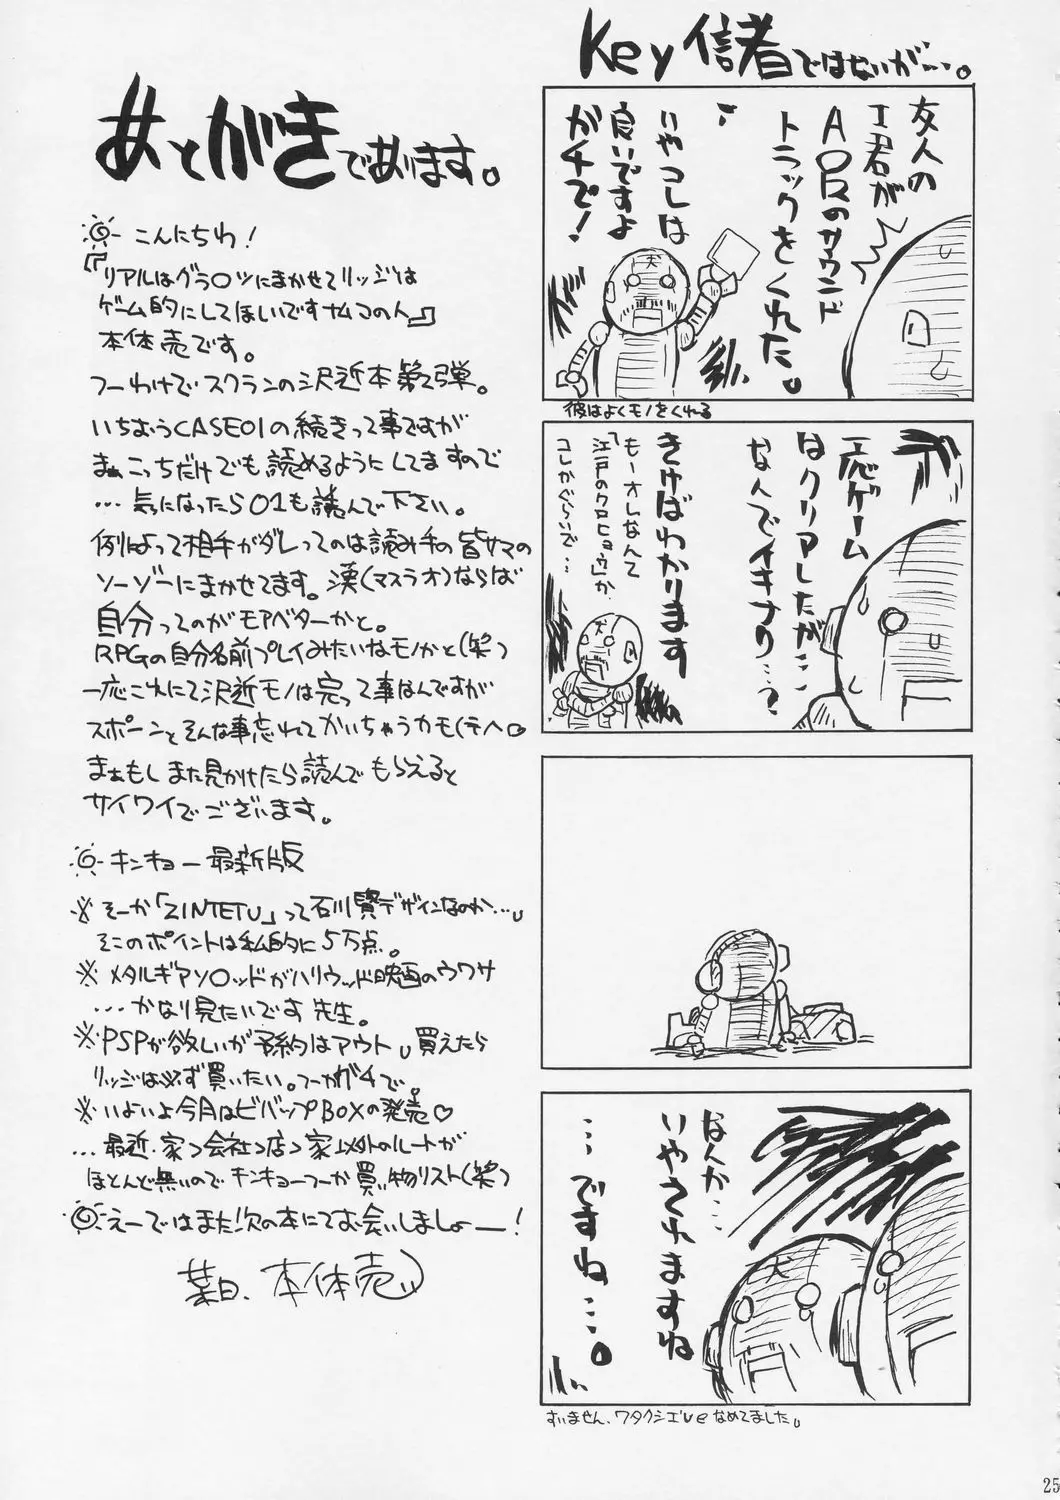 あとがきであります。
こんにちわ!
『リアルはグラ○ツにまかせてリッジは
ゲーム的にしてほしいですナムコの人』
本体売です。
つーわけでスクランの沢近本第2弾。
いちおうCASE01の続きって事ですが
まぁこっちだけでも読めるようにしてますので
…気になったら01も読んで下さい。
例によって相手がダレってのは読み手の皆サマの
ソーゾーにまかせてます。漢(マスラオ)ならば
自分ってのがモアベターかと。
RPGの自分名前プレイみたいなモノかと(笑)
一応これにて沢近モノは完って事なんですが
スポーンとそんな事忘れてかいちゃうカモ(テヘ。
まぁもしまた見かけたら読んでもらえると
サイワイでございます。
キンキョー最新版
※そーか「ZINTETU」って石川賢デザインなのか…。
そこのポイントは私的に5万点。
※メタルギアソ○ッドがハリウッド映画のウワサ
…かなり見たいです先生。
※PSPが欲しいが予約はアウト。買えたら
リッジは必ず買いたい。つーかガチで。
※いよいよ今月はビバップBOXの発売♡
…最近、家→会社→店→家以外のルートが
ほとんど無いのでキンキョーつーか買い物リスト(笑)
えーではまた次の本にてお会いしましょー!
葉月、本体売
Key信者ではないが…。
友人の
I君が
AIRのサウンド
トラックをくれた。
いやコレは
良いですよ
ガチで!
彼はよくモノをくれる
一応ゲーム
はクリアしたが…
なんでイキナリ…?
きけばわかります
もーオレなんて
「江戸のクロヒョウ」か
コレかぐらいで…
なんか…
いやされますね
…ですね…。
すいません、ワタクシKeyなめてました。
25